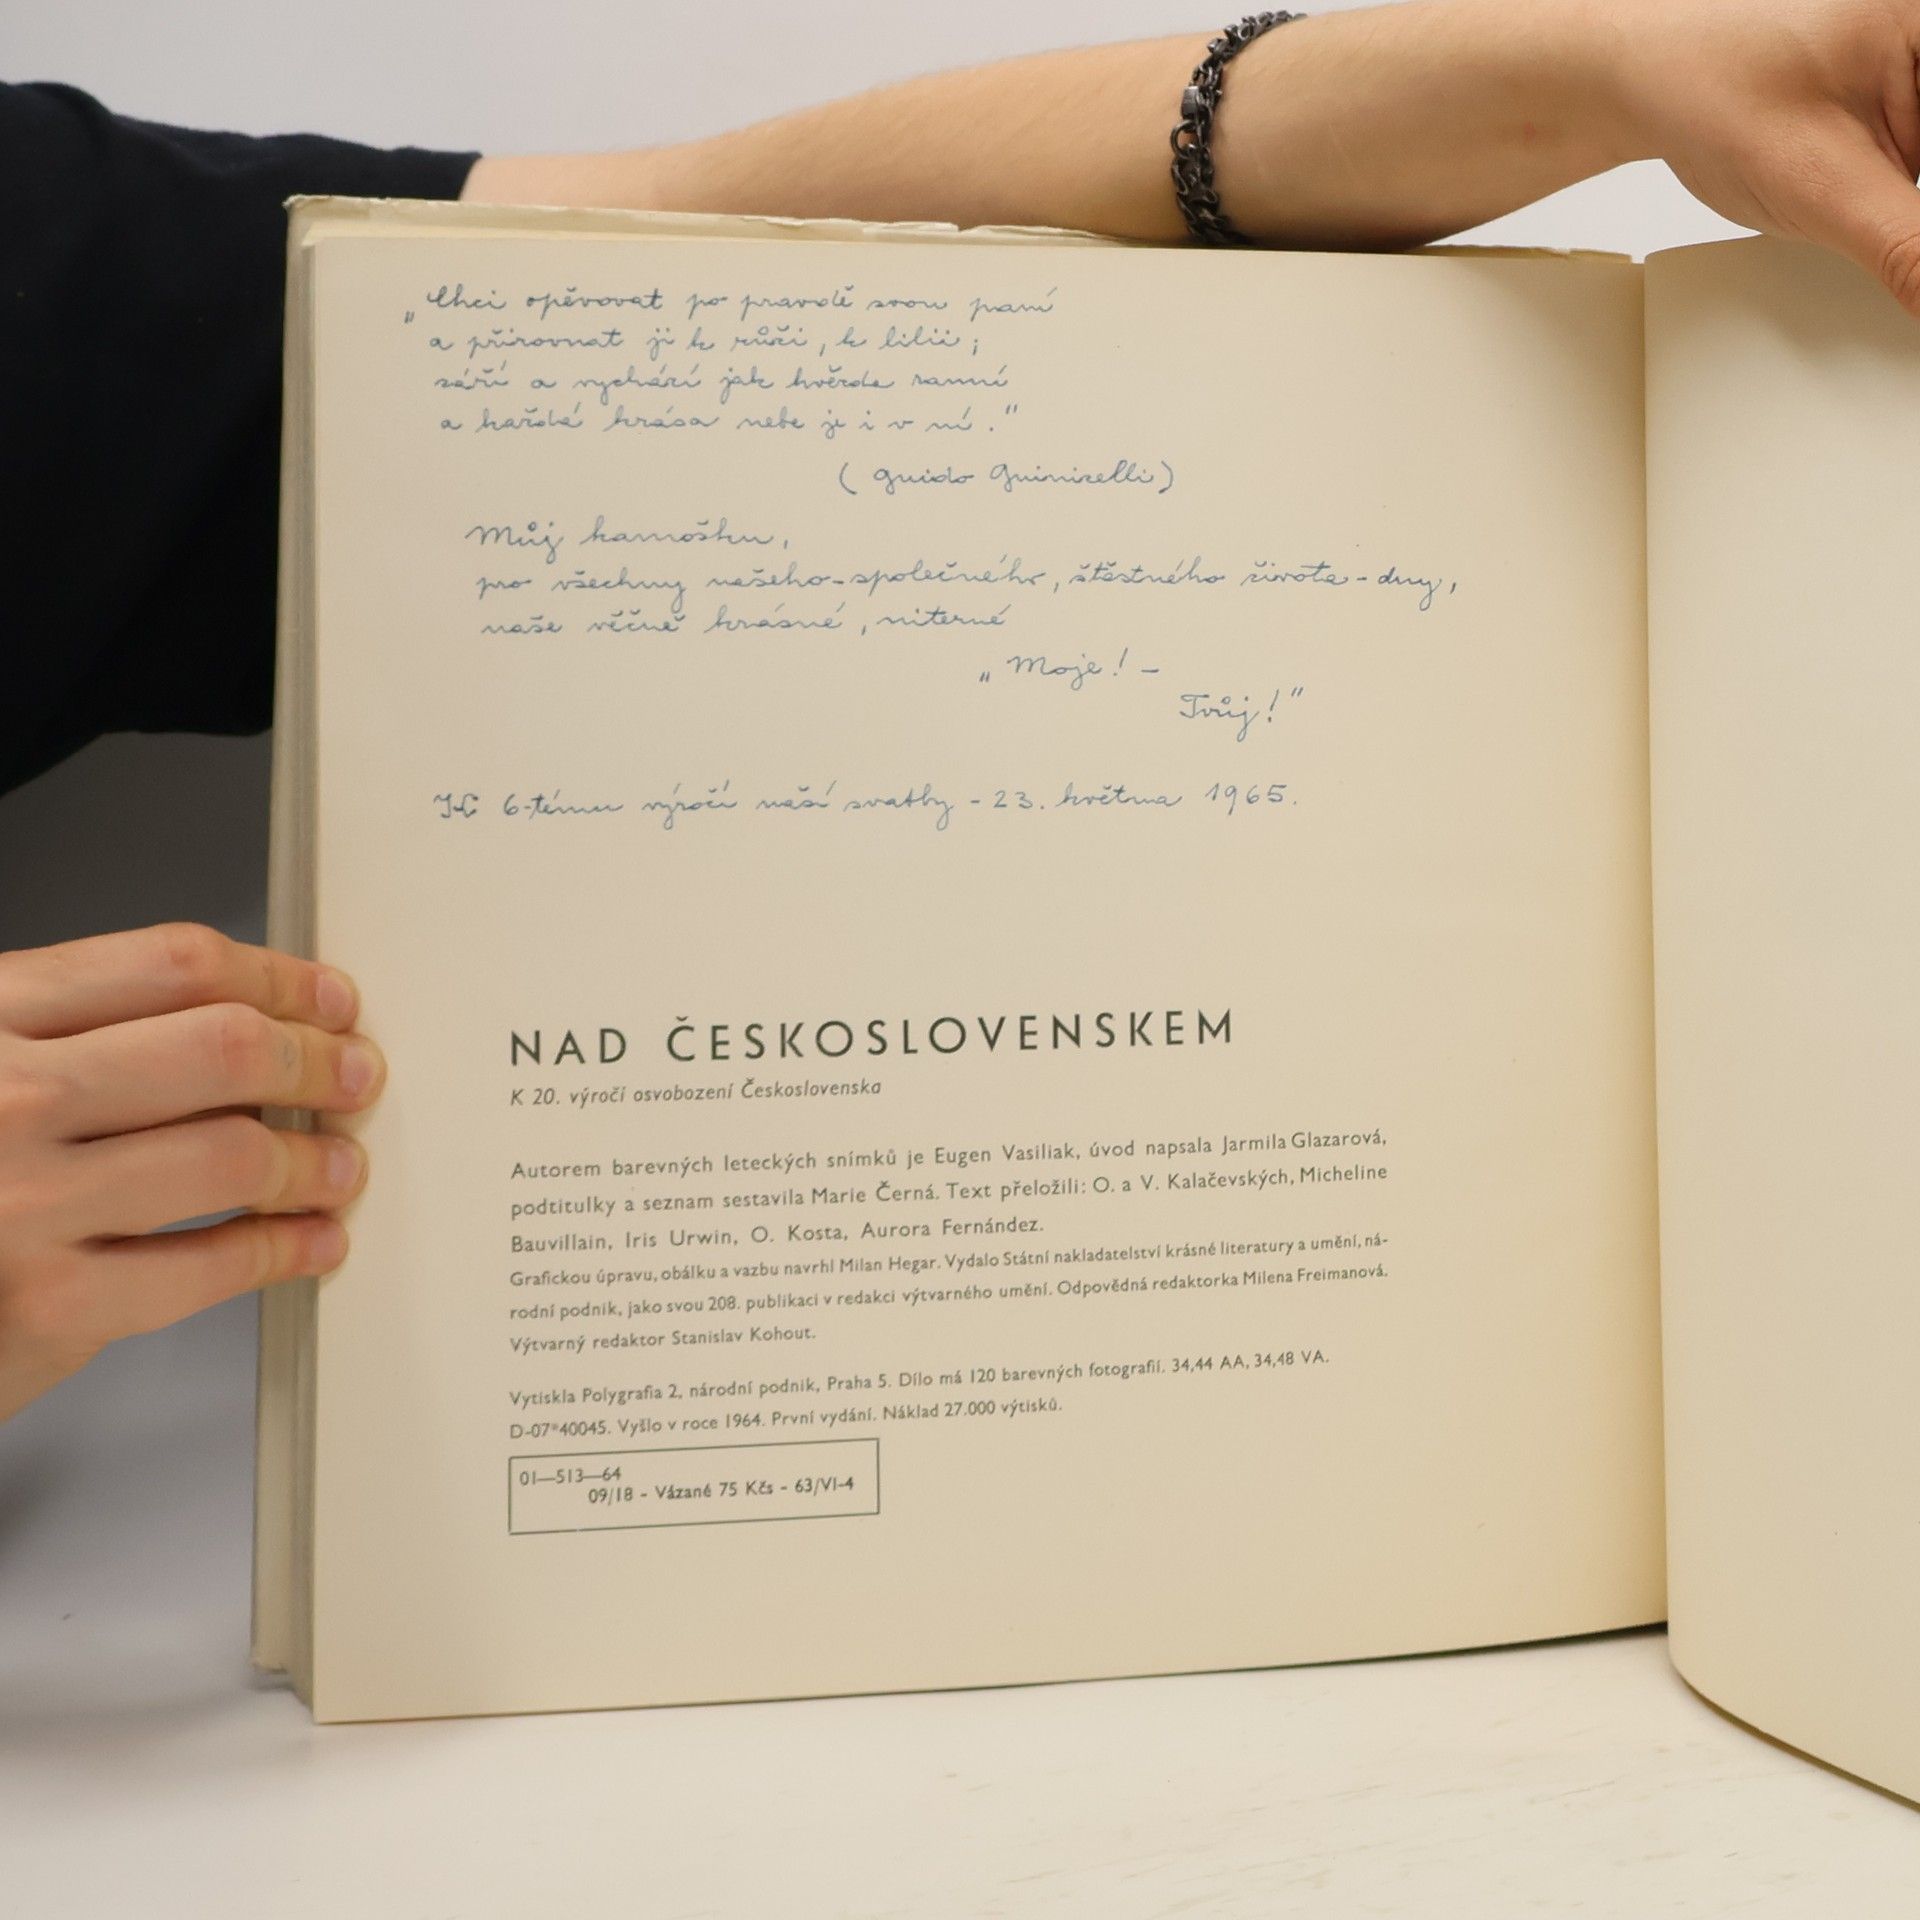 „Chci opěvovat po pravdě svou paní
a přirovnat ji k růži, k lilii;
září a vychází jak hvězda ranní
a každá krása nebe je i v ní."
(Guido Guinizelli)
Můj kamošku,
pro všechny našeho-společného, šťastného života-dny,
naše věčně krásné, niterné
„Moje! -
Tvůj!"
K 6-tému výročí naší svatby - 23. května 1965.
NAD ČESKOSLOVENSKEM
K 20. výročí osvobození Československa
Autorem barevných leteckých snímků je Eugen Vasiliak, úvod napsala Jarmila Glazarová,
podtitulky a seznam sestavila Marie Černá. Text přeložili: O. a V. Kalačevských, Micheline
Bauvillain, Iris Urwin, O. Kosta, Aurora Fernández.
Grafickou úpravu, obálku a vazbu navrhl Milan Hegar. Vydalo Státní nakladatelství krásné literatury a umění, ná-
rodní podnik, jako svou 208. publikaci v redakci výtvarného umění. Odpovědná redaktorka Milena Freimanová.
Výtvarný redaktor Stanislav Kohout.
Vytiskla Polygrafia 2, národní podnik, Praha 5. Dílo má 120 barevných fotografií. 34,44 AA, 34,48 VA.
D-07*40045. Vyšlo v roce 1964. První vydání. Náklad 27.000 výtisků.
01—513—64
09/18 - Vázané 75 Kčs - 63/VI-4